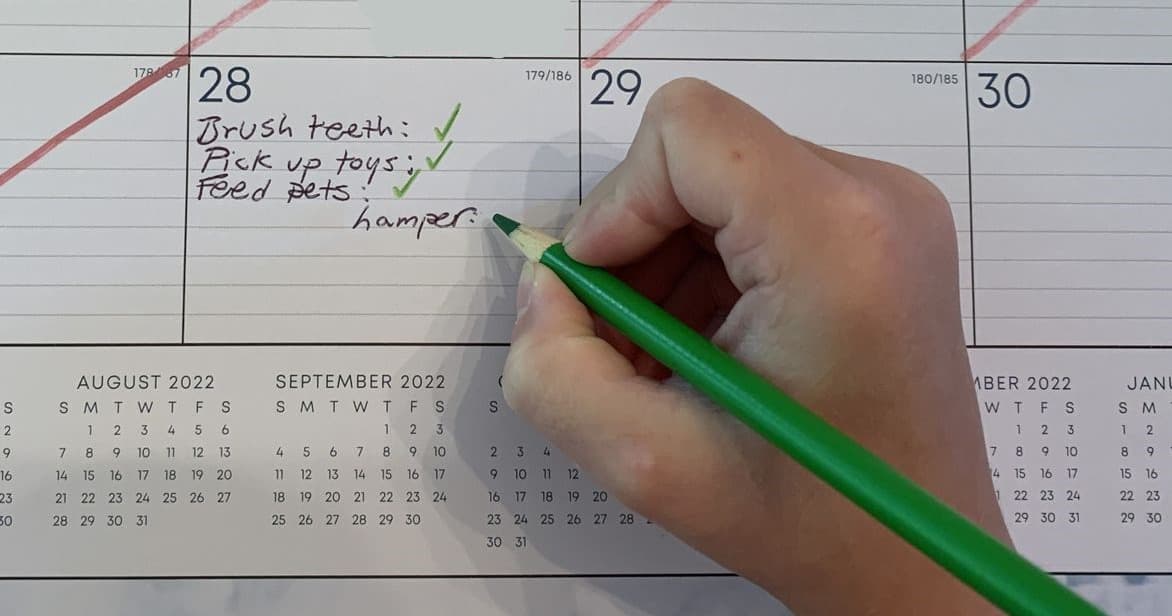 178/187 28 179/186 29 180/185 30
Brush teeth: ✓
Pick up toys: ✓
Feed pets: ✓
hamper:
AUGUST 2022 SEPTEMBER 2022 MBER 2022 JANU
S S M T W T F S S M T W T F S S W T F S S M
2 1 2 3 4 5 6 1 2 3 1 2 3 1 2
9 7 8 9 10 11 12 13 4 5 6 7 8 9 10 2 3 4 7 8 9 10 8 9
16 14 15 16 17 18 19 20 11 12 13 14 15 16 17 9 10 11 12 15 16 17 15 16
23 21 22 23 24 25 26 27 18 19 20 21 22 23 24 16 17 18 19 20 22 23 24 22 23
30 28 29 30 31 25 26 27 28 29 30 23 24 25 26 27 28 29 30 31 29 30
30 31